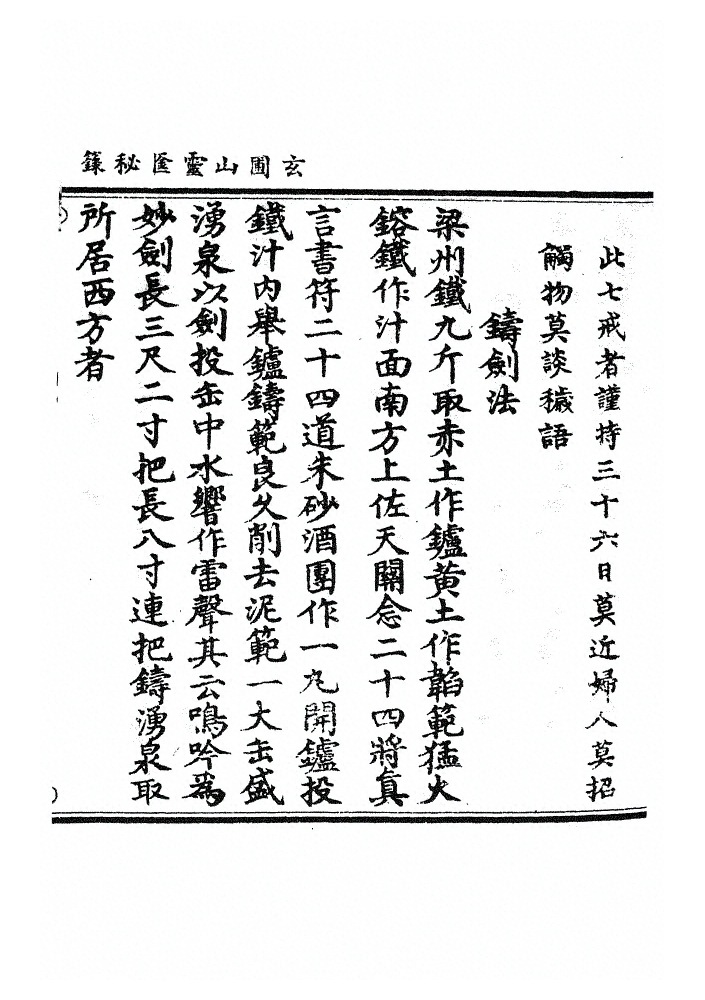 玄圃山靈匧秘籙
此七戒者謹持三十六日莫近婦人莫招
觸物莫談穢語
鑄劍法
梁州鐵九斤取赤土作鑪黃土作韜範猛火
鎔鐵作汁面南方上佐天關念二十四將真
言書符二十四道朱砂酒團作一丸開鑪投
鐵汁內舉鑪鑄範良久削去泥範一大缶盛
湧泉以劍投缶中水響作雷聲其云鳴吟為
妙劍長三尺二寸把長八寸連把鑄湧泉取
所居西方者